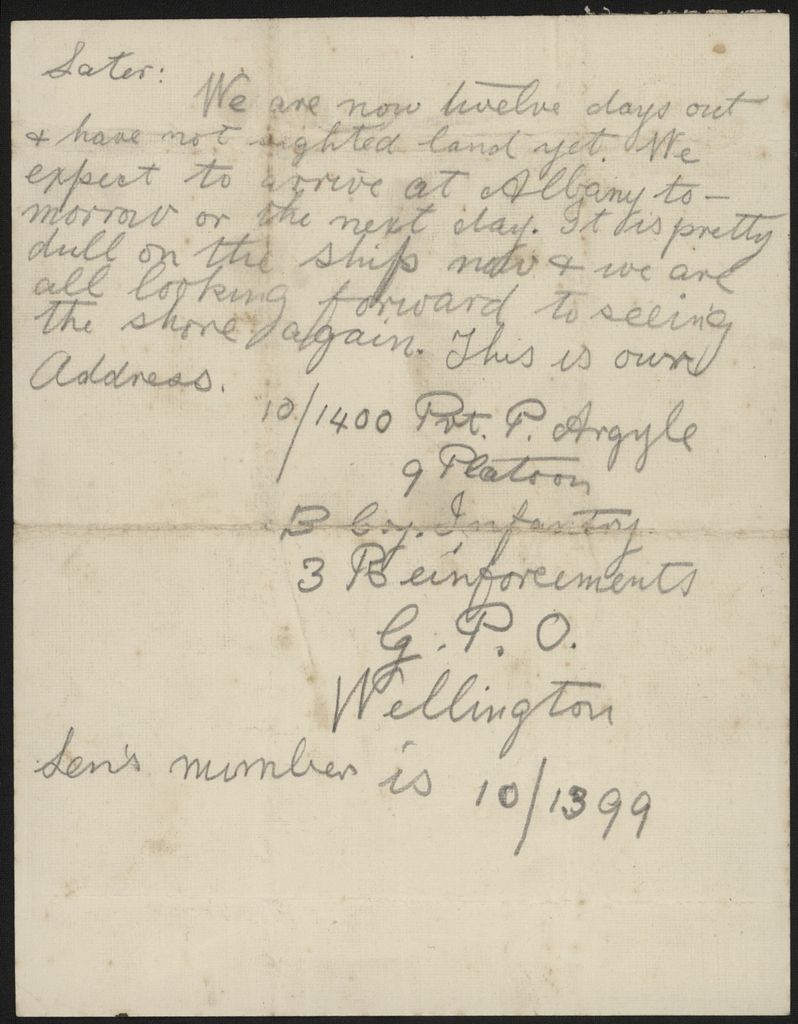 Later:
We are now twelve days out
& have not sighted land yet. We
expect to arrive at Albany to-
morrow or the next day. It is pretty
dull on the ship now & we are
all looking forward to seeing
the shore again. This is our
Address.
10/1400 Pvt. P. Argyle
9 Platoon
B Coy. Infantry
3 Reinforcements
G. P. O.
Wellington
Len's number is 10/1399